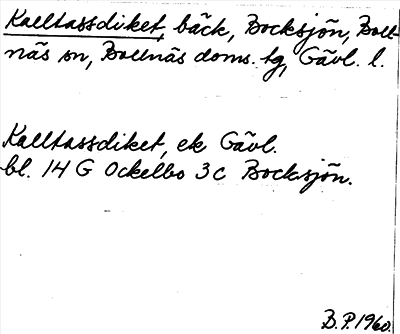 Kalltassdiket, bäck, Bocksjön, Boll-
näs sn, Bollnäs doms. tg, Gävl. l.
Kalltassdiket, ek Gävl.
bl. 14 G Ockelbo 3c Bocksjön.
B.P. 1960.